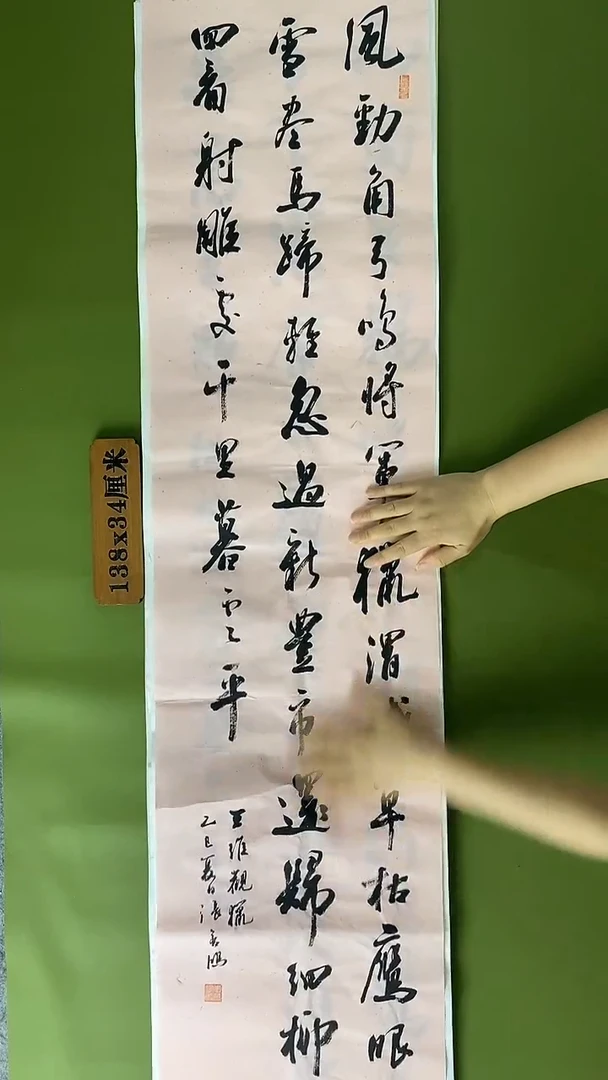 風勁角弓鳴將軍獵渭草枯鷹眼
雪盡馬蹄輕忽過新豐市還歸細柳
回看射雕處千里暮雲平
王維觀獵
乙巳夏日張
138x34厘米